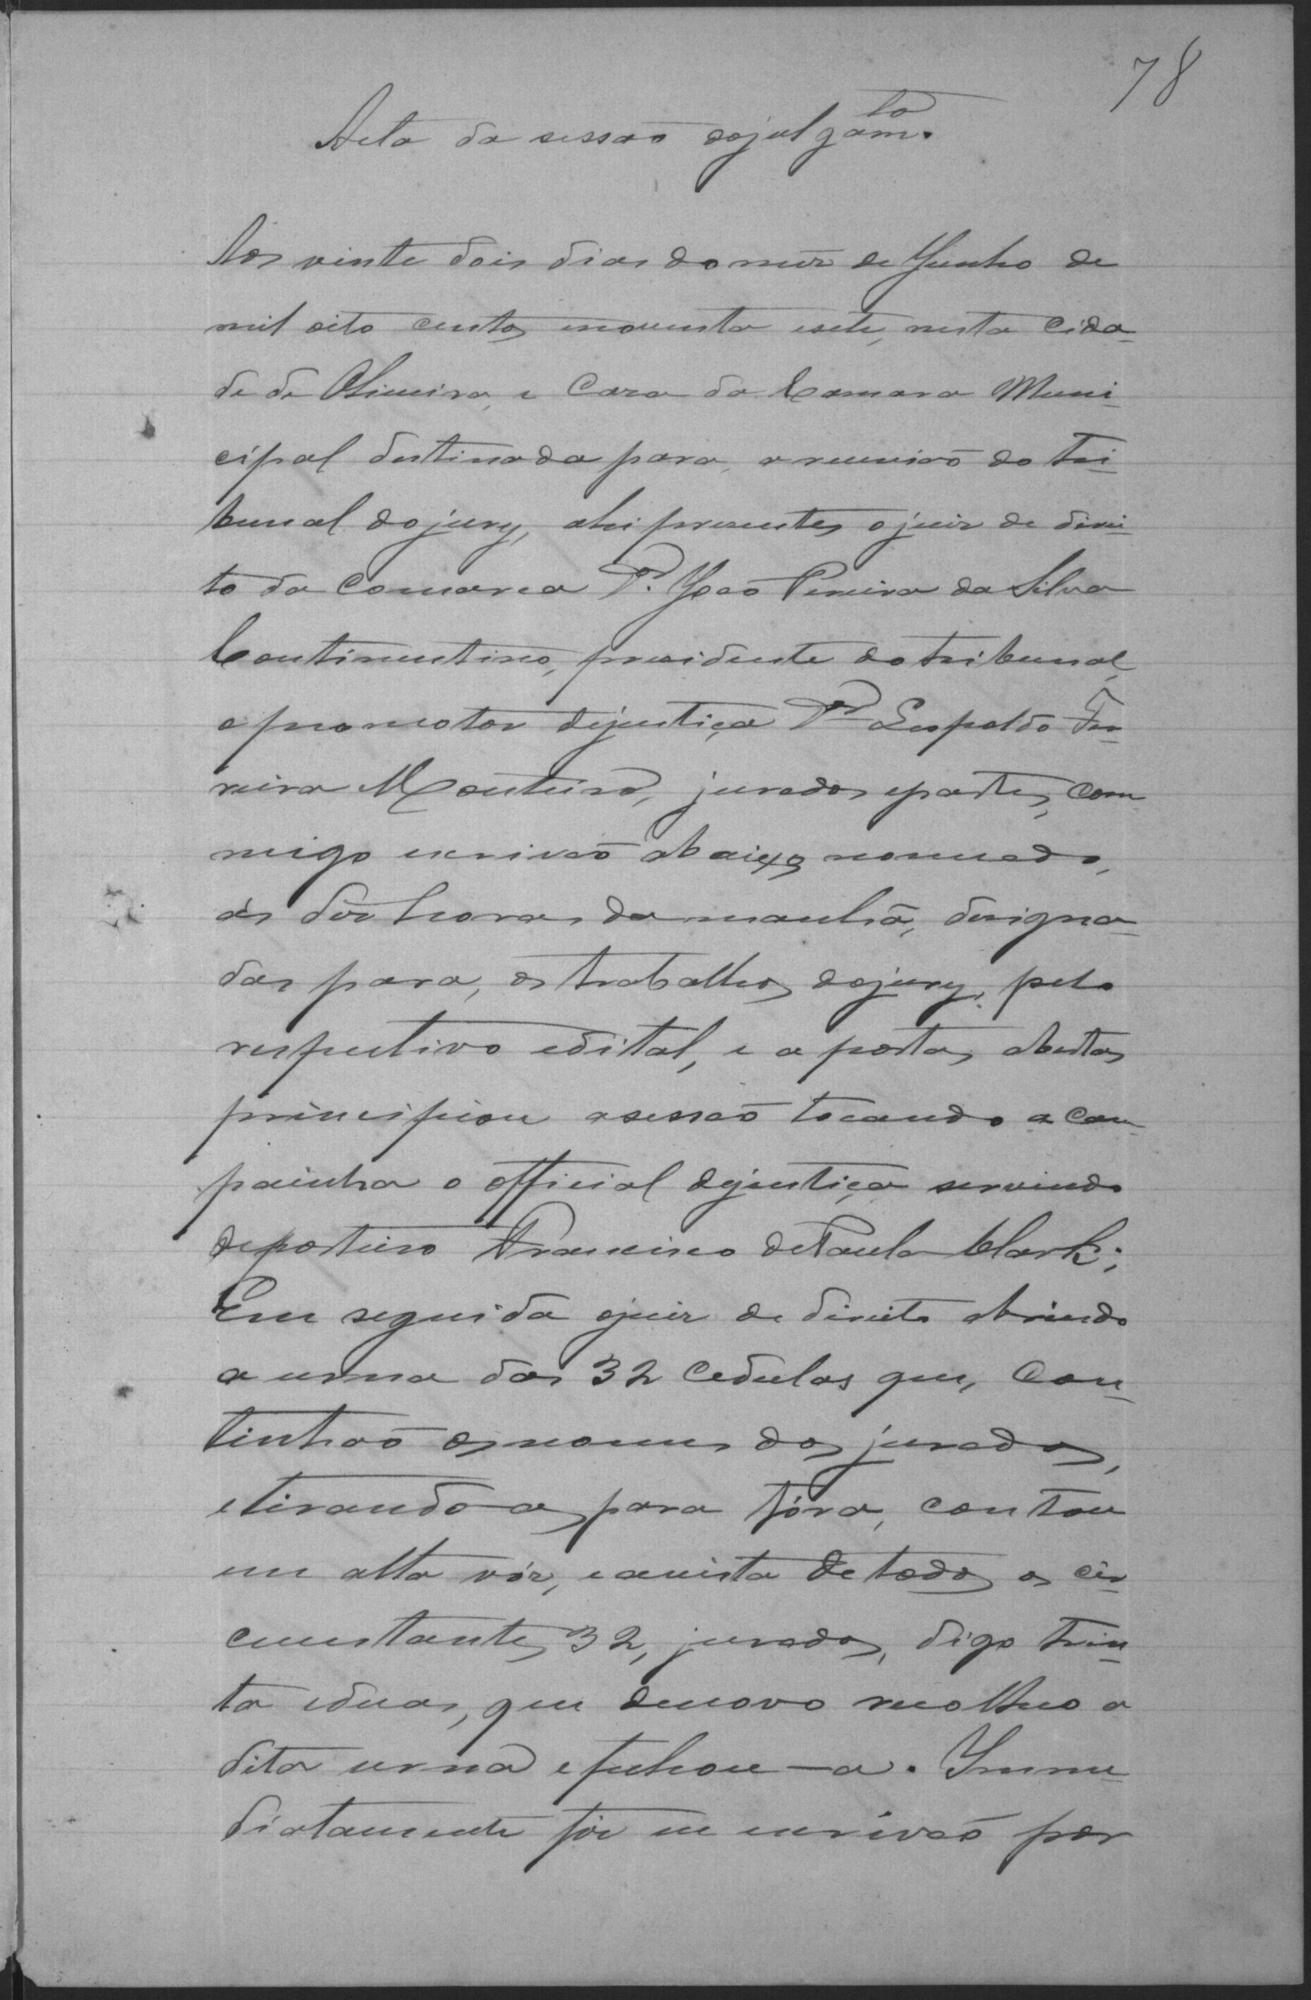 78
Acta da sessão dojulgam.to
Aos vinte dois dias do mez de Junho de
mil oito centos, noventa esete, nesta cida-
de de Oliveira, e Caza da Camara Muni-
cipal destinada para, a reunião do tri-
bunal dojury, ahi presentes, o juiz de direi-
to da Comarca Dr. João Pereira da Silva
Continentino, presidente do tribunal,
o promotor dejustiça Dr. Leopoldo Fer-
reira Monteiro, jurados epartes, com-
migo escrivão abaixo nomeado,
ás dez horas da manhã, designa-
das para, os trabalhos, dojury, pelo
respectivo edital, e a portas, abertas
principiou asessão tocando a cam-
painha o official dejustiça servindo
deporteiro Francisco dePaula Clark;
Em seguida ojuiz de direito abrindo
a urna das 32 cedulas que, con-
tinhão osnomes dos jurados,
etirando as para fóra, contou
em alta vóz, eavista de todos os cir-
cunstantes 32, jurados, digo trin-
ta eduas, que denovo recolheo a
dita urna efechou-a. Imme-
diatamente foi eu escrivão por